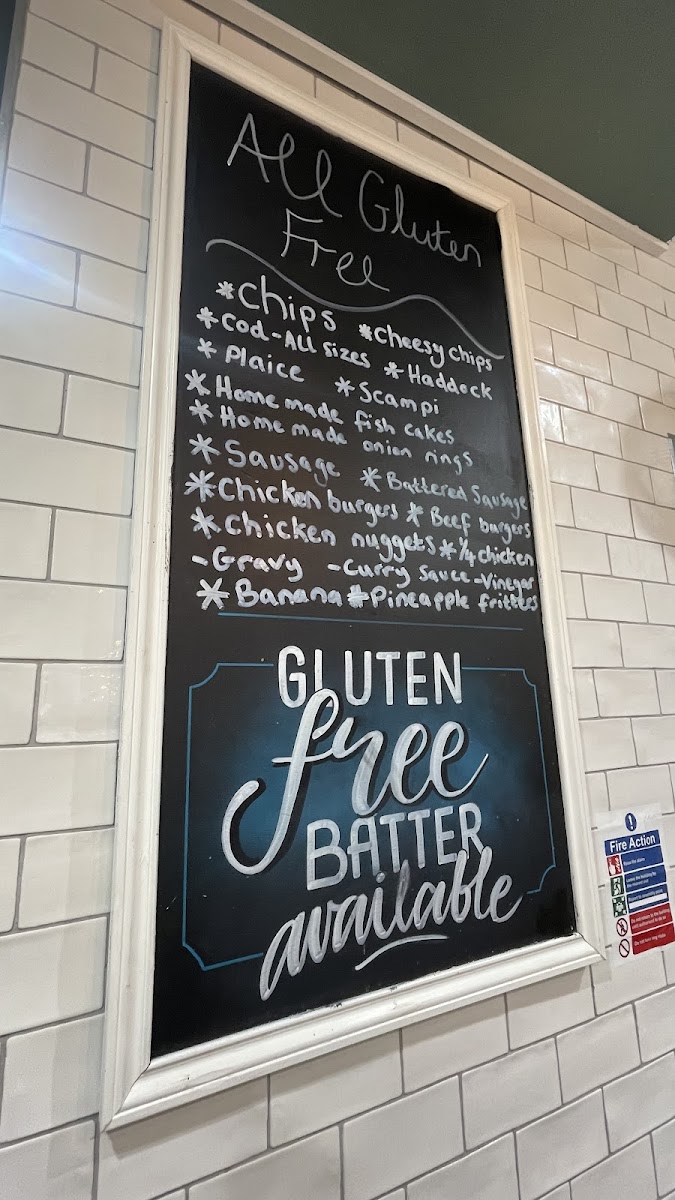 All Gluten
Free
*chips *cheesy chips
*cod-All sizes *Haddock
*Plaice *Scampi
*Home made fish cakes
*Home made onion rings
*Sausage *Battered Sausage
*chicken burgers *Beef burgers
*chicken nuggets *1/4 chicken
-Gravy -Curry sauce -Vinegar
*Banana *Pineapple fritters
GLUTEN
free
BATTER
available
Fire Action